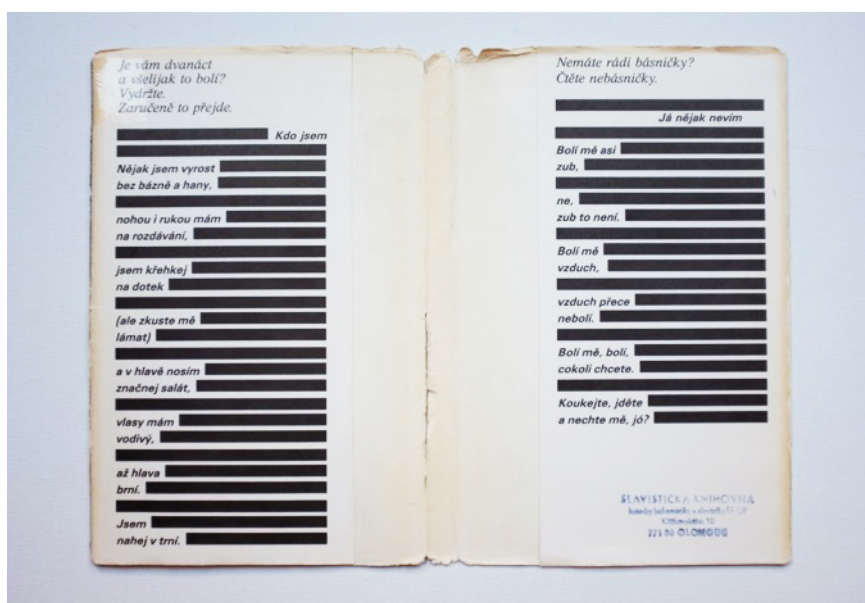 Je vám dvanáct
a všelijak to bolí?
Vydržte.
Zaručeně to přejde.
Kdo jsem
Nějak jsem vyrost
bez bázně a hany,
nohou i rukou mám
na rozdávání,
jsem křehkej
na dotek
(ale zkuste mě
lámat)
a v hlavě nosím
značnej salát,
vlasy mám
vodivý,
až hlava
brní.
Jsem
nahej v trní.
Nemáte rádi básničky?
Čtěte nebásničky.
Já nějak nevím
Bolí mě asi
zub,
ne,
zub to není.
Bolí mě
vzduch,
vzduch přece
nebolí.
Bolí mě, bolí,
cokoli chcete.
Koukejte, jděte
a nechte mě, jó?
SLAVISTICKÁ KNIHOVNA
OLOMOUC